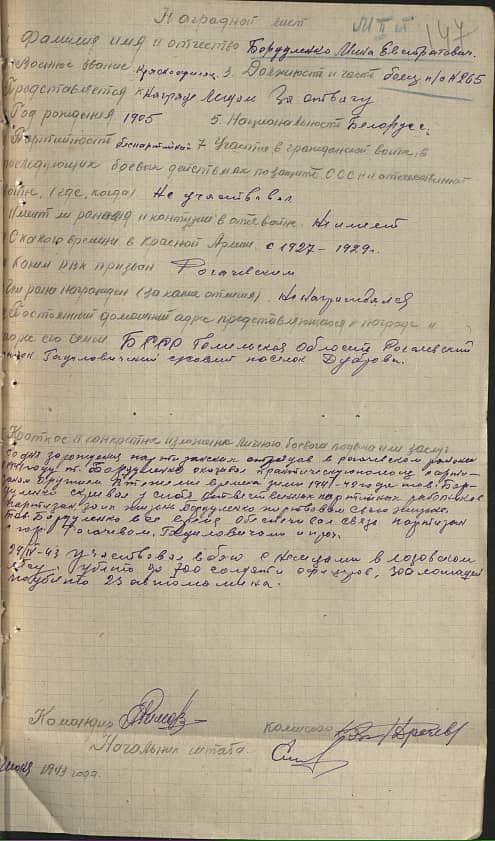 Наградной лист
147
Фамилия имя и отчество Бордуленко Мина Евстратович.
Военное звание Красноармеец. 3. Должность и часть боец п/о №265
Представляется к награде Медаль За отвагу
Год рождения 1905 5. Национальность Белорус.
Партийность беспартийный 7 Участие в гражданской войне, в
последующих боевых действиях по защите СССР и отечественной
войне. (где, когда) Не участвовал
Имеет ли ранения и контузии в отеч войне. Не имеет
С какого времени в Красной Армии. с 1927 – 1929г.
Каким РВК призван Рогачевским
Чем ранее награжден (за какие отличия). Не награждался
Постоянный домашний адрес представляемого к награде и
адрес его семьи БССР Гомельская Область Рогачевский
район Гадиловичский с/совет поселок Дубровы.
Краткое и конкретное изложение личного боевого подвига или заслуг
Со дня зарождения партизанских отрядов в рогачевском районе
1941 году т. Бордуленко оказывал практическую помощь парти-
занам В течении времени зимы 1941-42 года тов. Бор-
дуленко скрывал у себя ответственных партийных работников
партизан, за их жизнь Бордуленко жертвовал своей жизнью.
Тов. Бордуленко все время обеспечивал связь партизан
с гор. Рогачевом, Гадиловичами и др.
29/IV-43 участвовал в бою с немцами в лозовском
лесу, убито до 700 солдат и офицеров, 300 лошадей
подбито 23 автомашины.
Командир
комиссар
Начальник штаба
июня 1943 года.